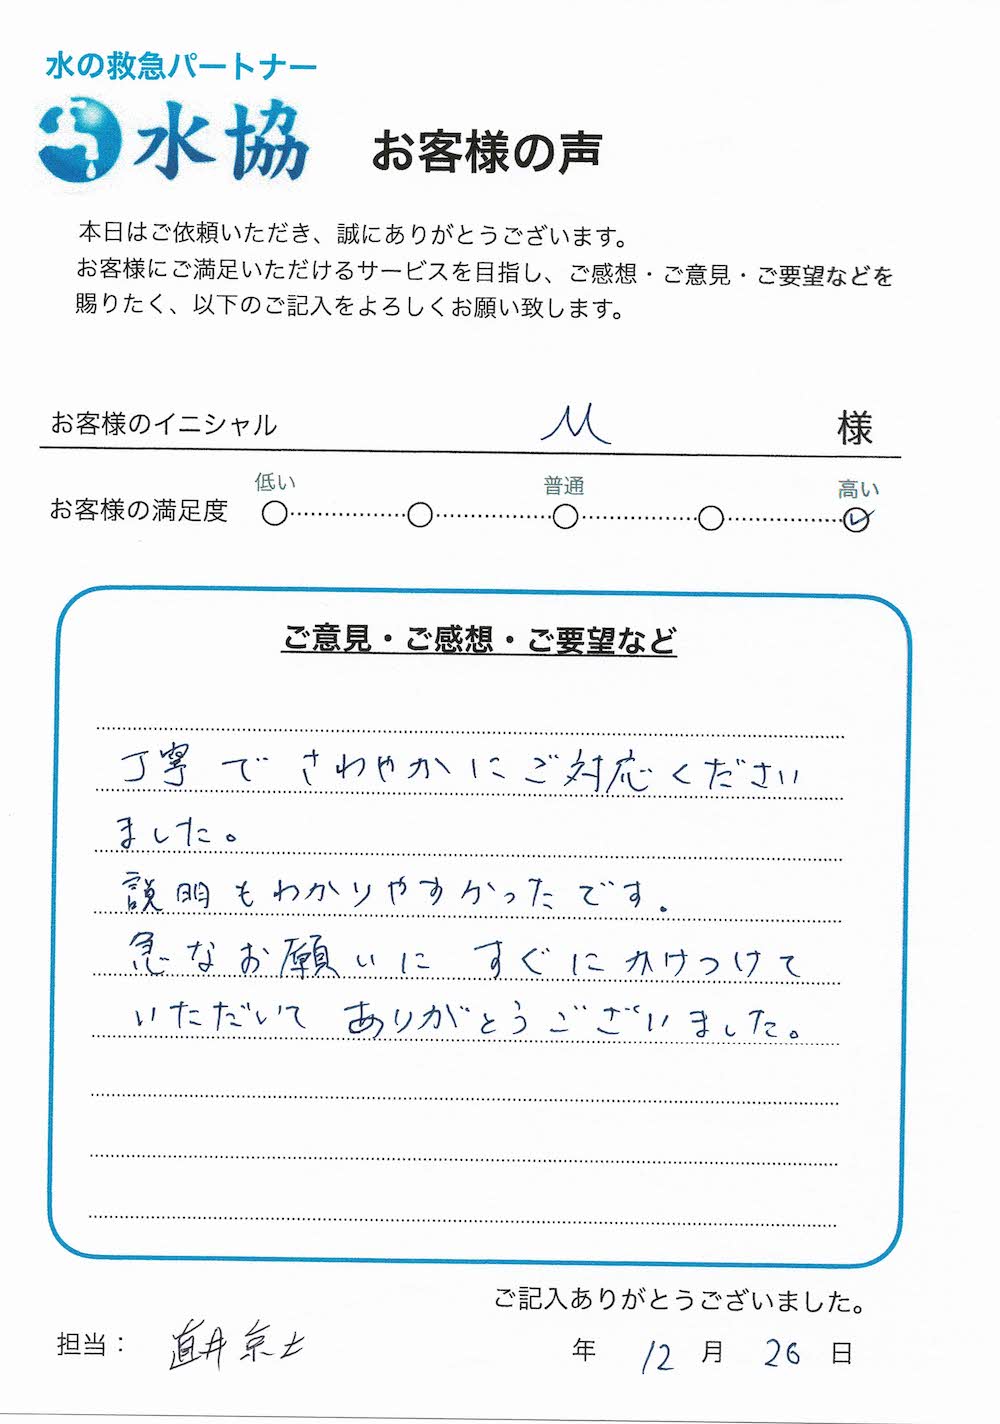 水の救急パートナー
水協
お客様の声
本日はご依頼いただき、誠にありがとうございます。
お客様にご満足いただけるサービスを目指し、ご感想・ご意見・ご要望などを
賜りたく、以下のご記入をよろしくお願い致します。
お客様のイニシャル M 様
低い 普通 高い
お客様の満足度
ご意見・ご感想・ご要望など
丁寧で さわやかにご対応ください
ました。
説明もわかりやすかったです.
急なお願いに すぐにかけつけて
いただいて ありがとうございました。
ご記入ありがとうございました。
担当： 直井京士
年 12 月 26 日